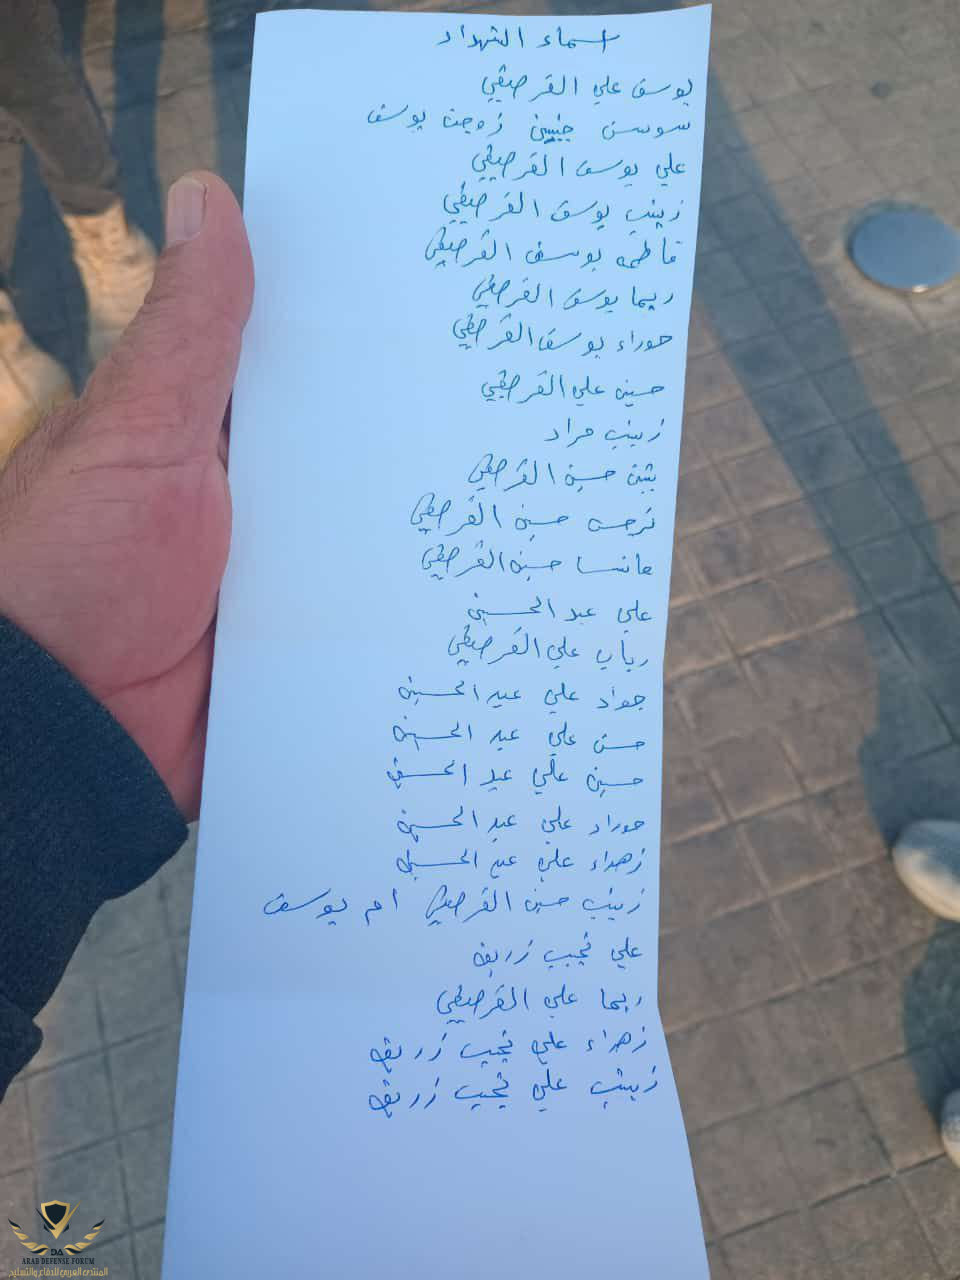 اسماء الشهداء
يوسف علي القرصيفي
سوسن زوجت يوسف
علي يوسف القرصيفي
زينب يوسف القرصيفي
فاطمه يوسف القرصيفي
ريما يوسف القرصيفي
حوراء يوسف القرصيفي
حسين علي القرصيفي
زينب مراد
حسين القرصيفي
نرجس حسين القرصيفي
حسين القرصيفي
علي عبد الحسين
رباب علي القرصيفي
جواد علي عبد الحسين
حسن علي عبد الحسين
حسين علي عبد الحسين
علي عبد الحسين
زهراء علي عبد الحسين
زينب حسين القرصيفي ام يوسف
علي نجيب زريق
ريما علي القرصيفي
زهراء علي نجيب زريق
زينب علي نجيب زريق
DA
ARAB DEFENSE FORUM
المنتدى العربي للدفاع والتسليح